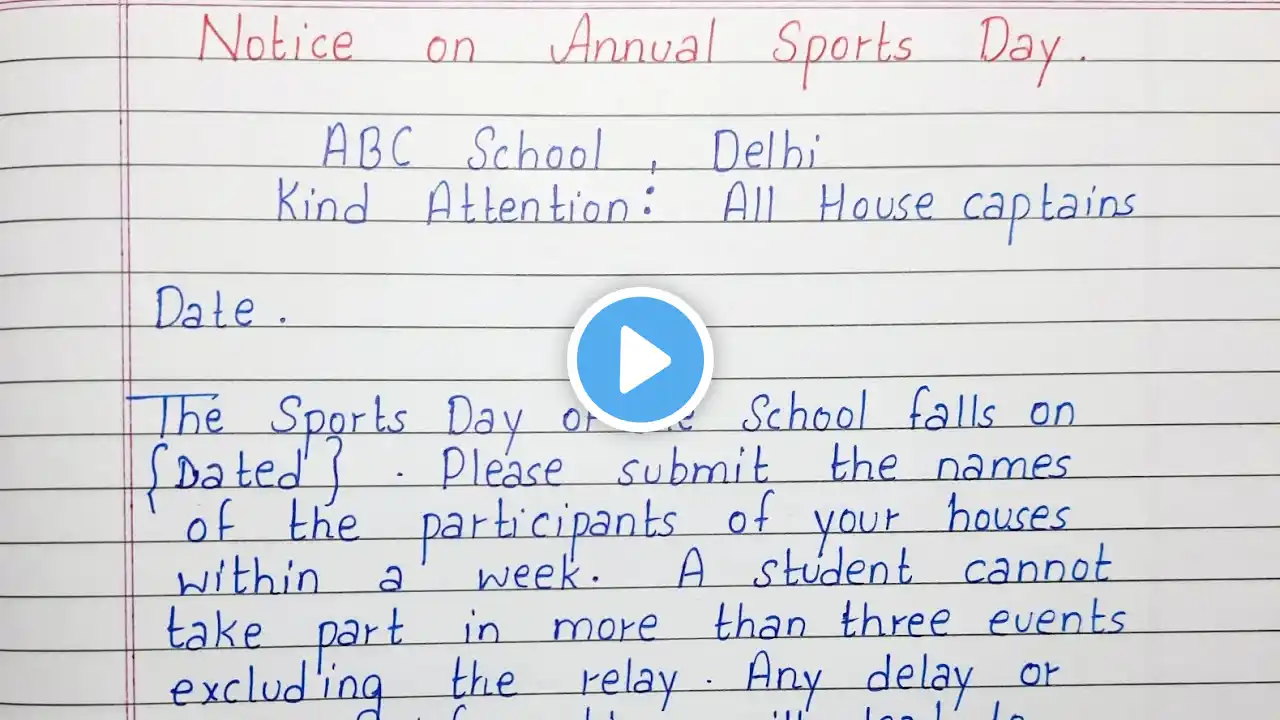 Notice on Annual Sports Day.
ABC School, Delhi
Kind Attention: All House captains
Date.
The Sports Day School falls on
{Dated}. Please submit the names
of the participants of your houses
within a week. A student cannot
take part in more than three events
excluding the relay. Any delay or